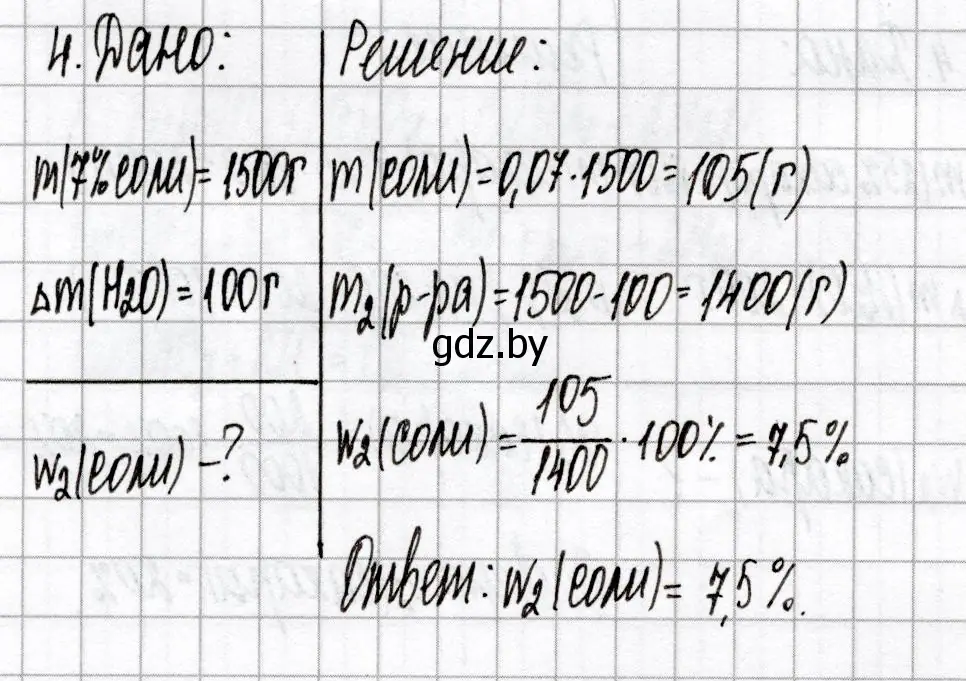 4. Дано:
m(7% соли) = 1500г
Δm(H₂O) = 100г
w₂(соли) - ?
Решение:
m(соли) = 0,07·1500 = 105(г)
m₂(р-ра) = 1500-100 = 1400(г)
gdz.by
w₂(соли) = 105/1400 · 100% = 7,5%.
Ответ: w₂(соли) = 7,5%.